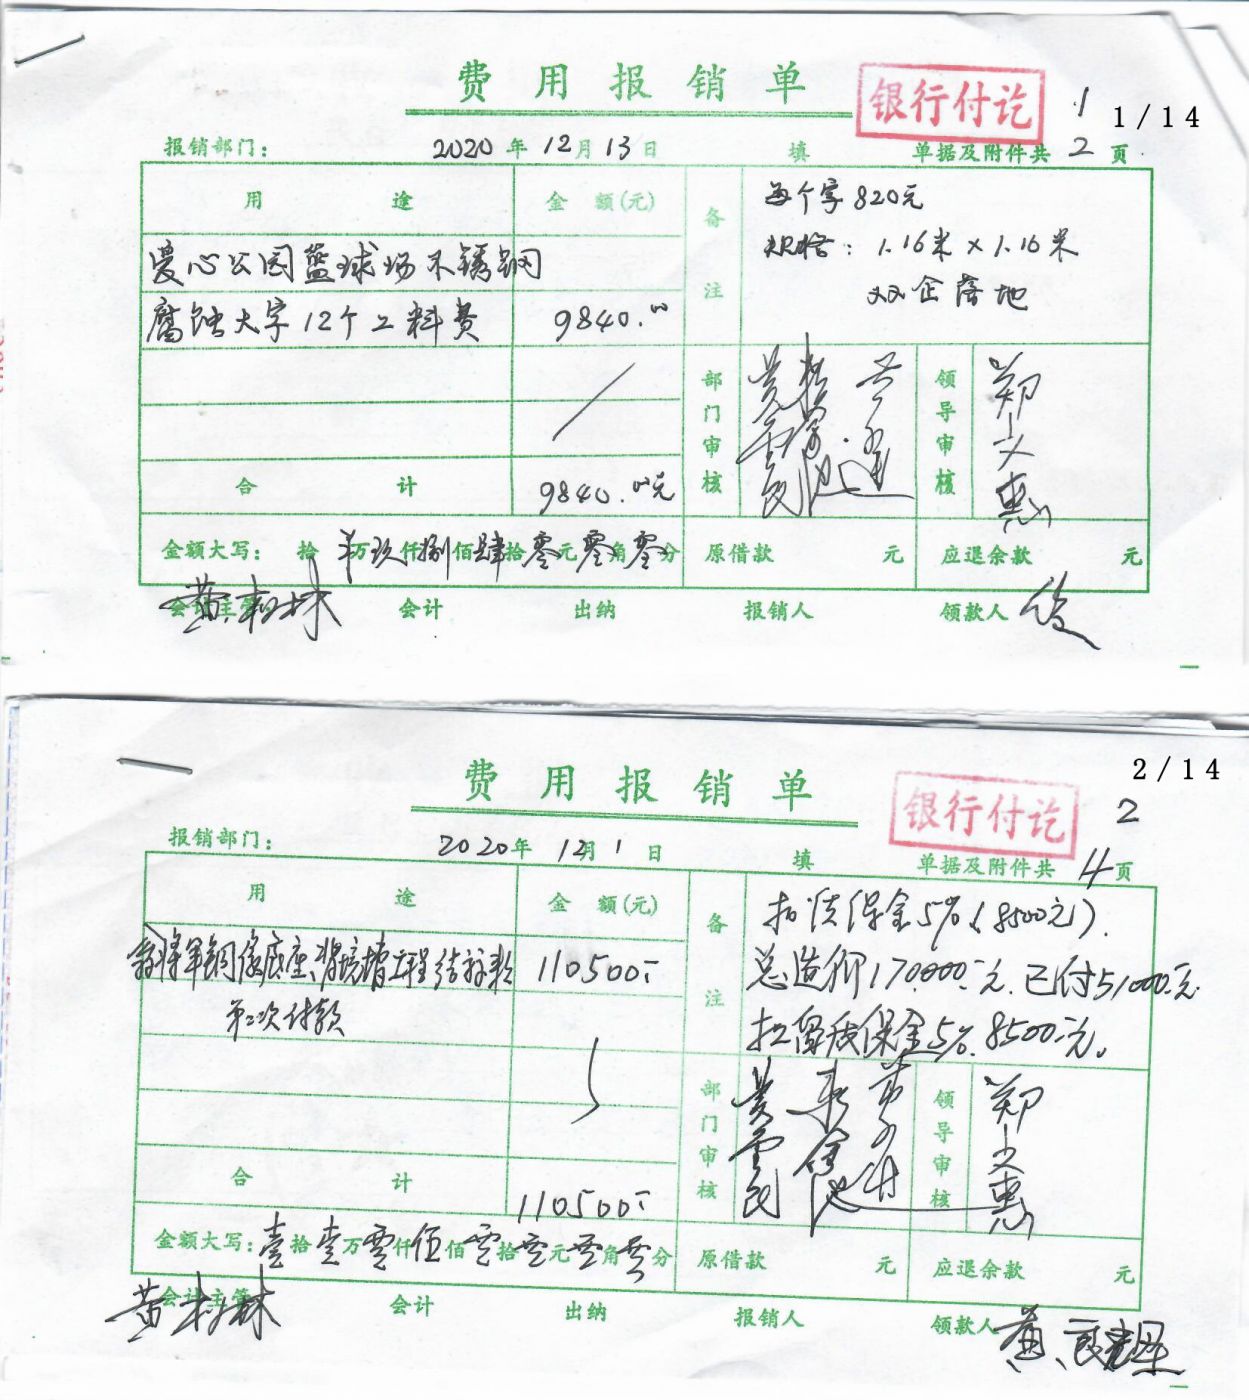 费用报销单
银行付讫
1
1/14
报销部门：
2020年12月13日
填
单据及附件共2页
用途
金额(元)
备注
每个字820元
规格：1.16米×1.16米
双企落地
爱心公园篮球场不锈钢
腐蚀大字12个工料费
9840.00
部门审核
领导审核
郑文惠
合计
9840.00元
金额大写：拾万玖仟捌佰肆拾零元零角零分
原借款元
应退余款元
会计主管
会计
出纳
报销人
领款人
2/14
费用报销单
银行付讫
2
报销部门：
2020年12月1日
填
单据及附件共4页
用途
金额(元)
备注
扣质保金5%(8500元).
总造价170000元.已付51000元
扣留质保金5%.8500元。
将军铜像底座、背境墙工程结算款
110500
第二次付款
部门审核
领导审核
郑文惠
合计
110500
金额大写：壹拾壹万零仟伍佰零拾零元零角零分
原借款元
应退余款元
会计主管
会计
出纳
报销人
领款人